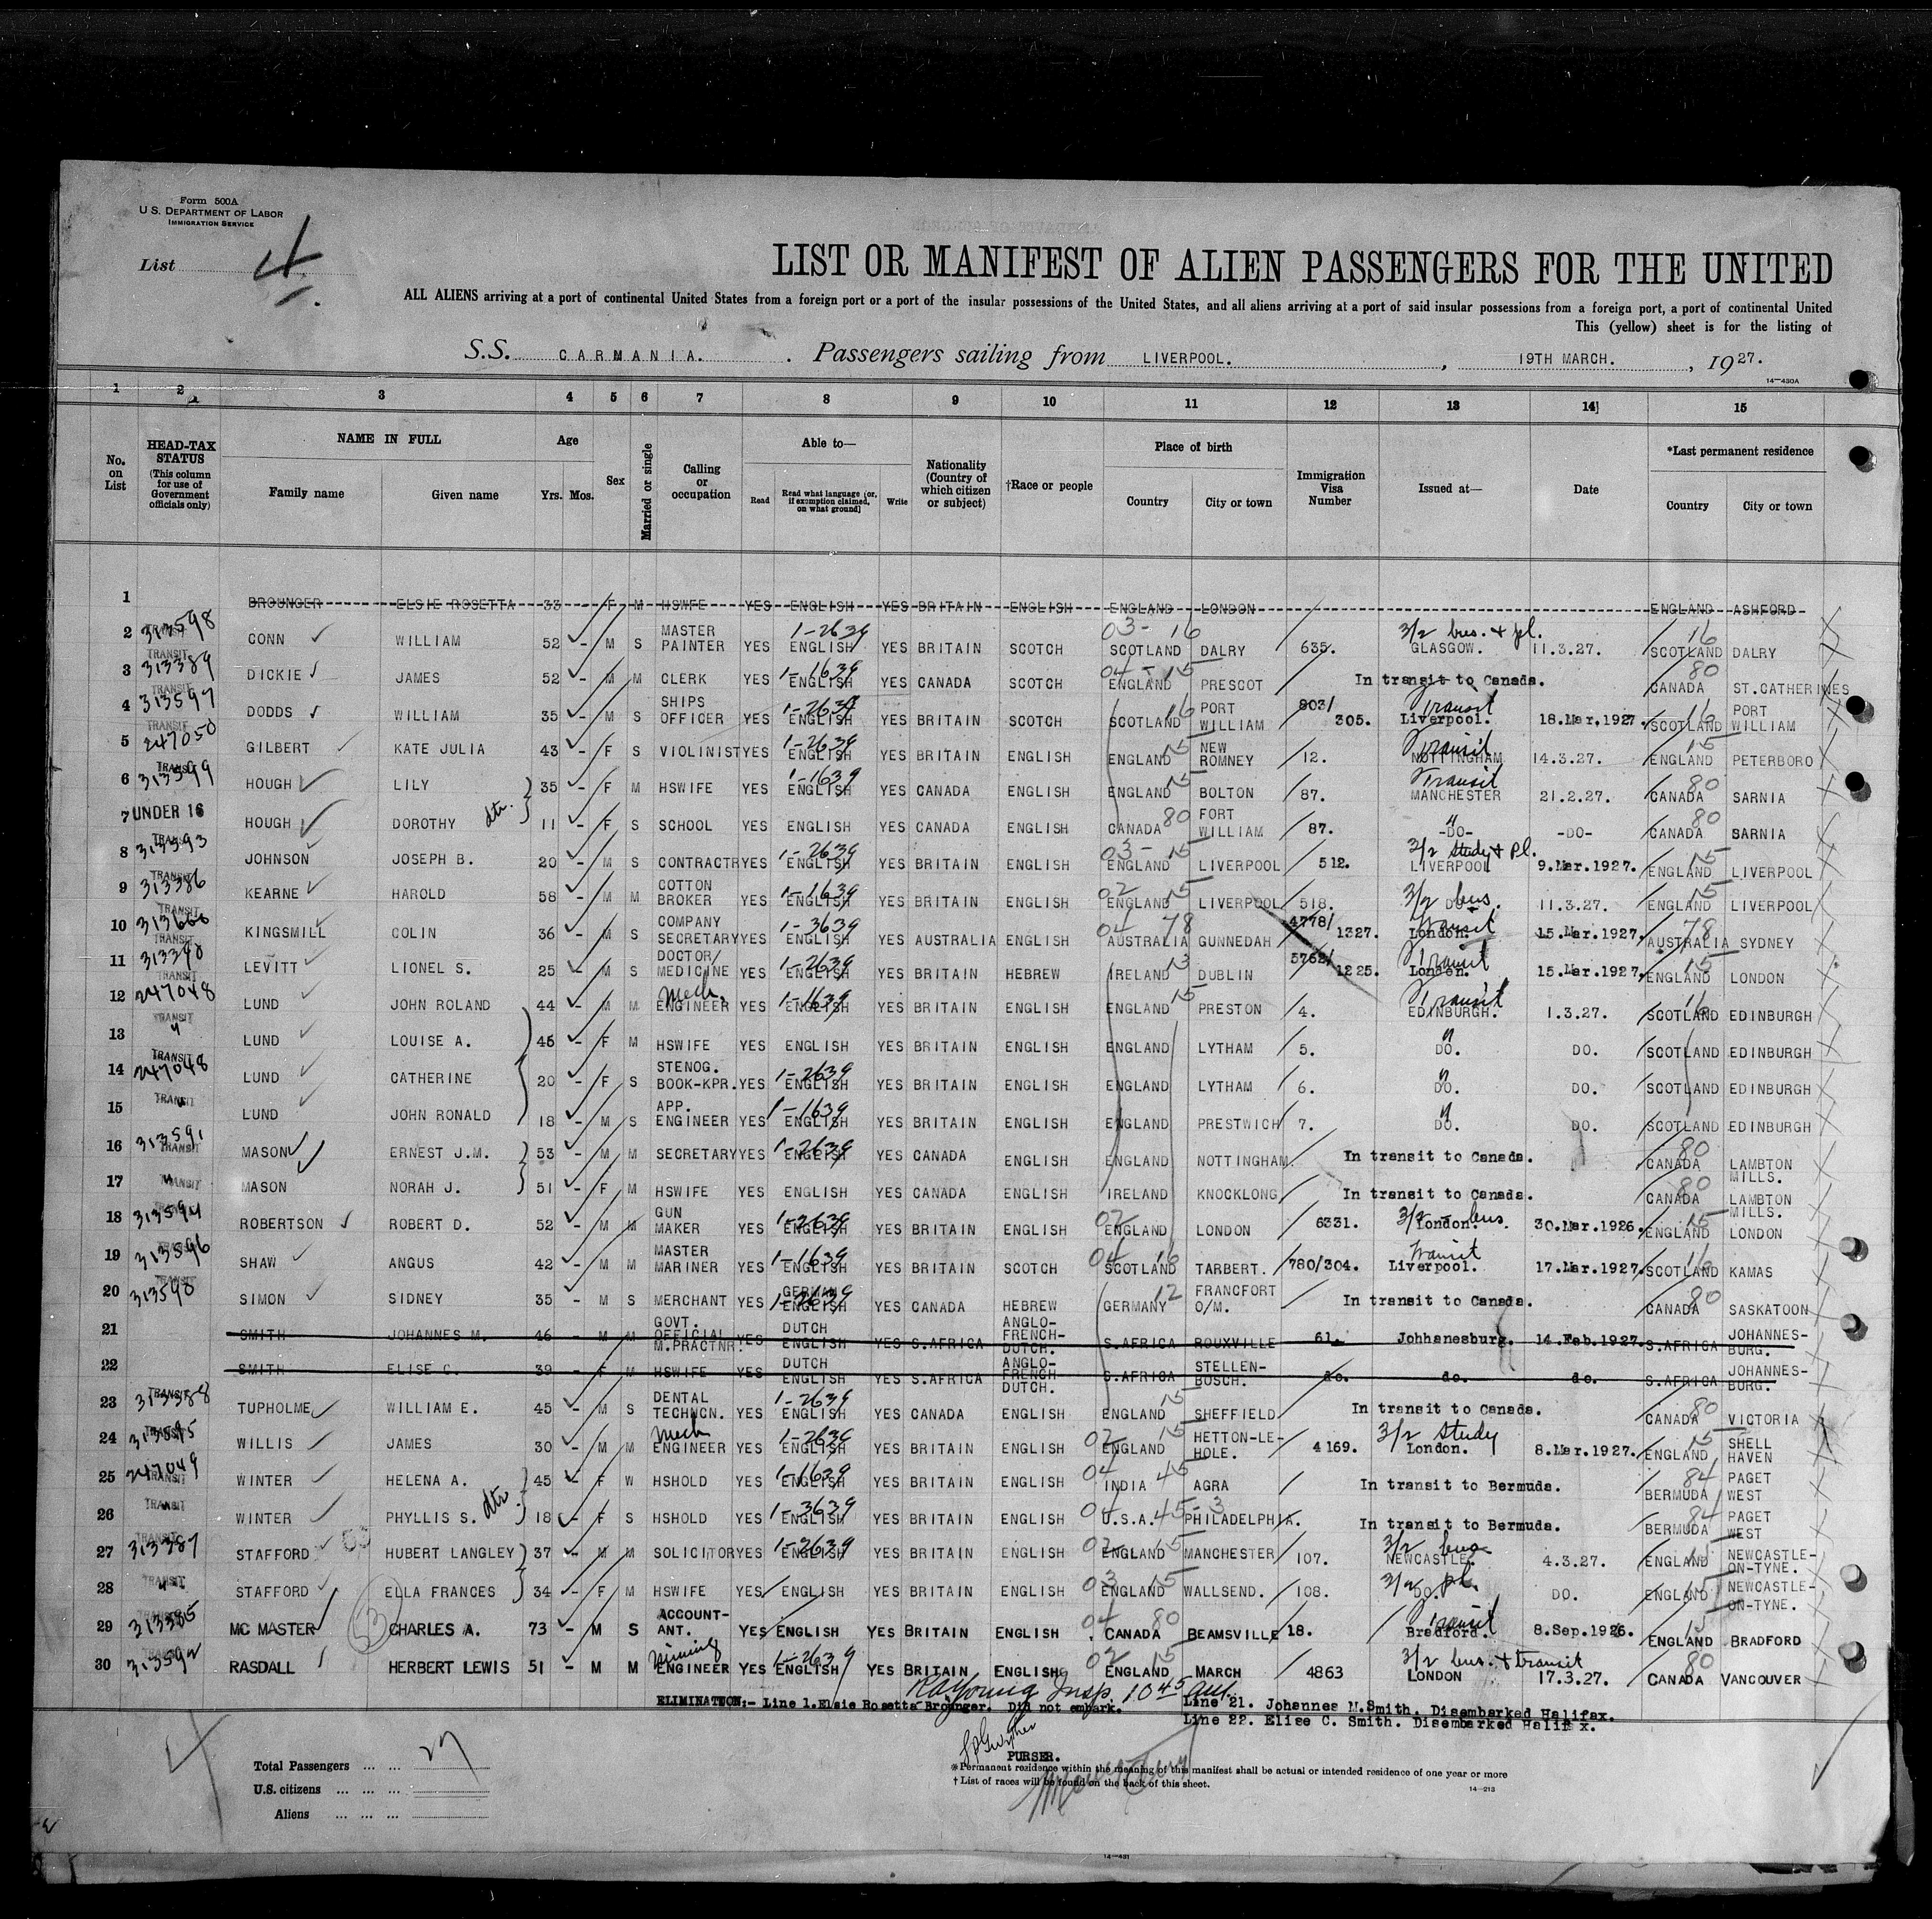 Form 500A
U.S. DEPARTMENT OF LABOR
IMMIGRATION SERVICE
List 4
LIST OR MANIFEST OF ALIEN PASSENGERS FOR THE UNITED
ALL ALIENS arriving at a port of continental United States from a foreign port or a port of the insular possessions of the United States, and all aliens arriving at a port of said insular possessions from a foreign port, a port of continental United
This (yellow) sheet is for the listing of
S.S. CARMANIA. Passengers sailing from LIVERPOOL. , 19TH MARCH. , 1927.
14—430A
1 2 3 4 5 6 7 8 9 10 11 12 13 14 15
No. on List HEAD-TAX STATUS (This column for use of Government officials only) NAME IN FULL Family name Given name Age Yrs. Mos. Sex Married or single Calling or occupation Able to— Read Read what language (or, if exemption claimed, on what ground) Write Nationality (Country of which citizen or subject) †Race or people Place of birth Country City or town Immigration Visa Number Issued at— Date *Last permanent residence Country City or town
1 BROUNGER ELSIE ROSETTA 33 - F M HSWFE YES ENGLISH YES BRITAIN ENGLISH ENGLAND LONDON ENGLAND ASHFORD
2 TRANSIT 313598 CONN WILLIAM 52 - M S MASTER PAINTER YES 1-2639 ENGLISH YES BRITAIN SCOTCH 03-16 SCOTLAND DALRY 635. 3/2 bus. + pl. GLASGOW. 11.3.27. 16 SCOTLAND DALRY
3 TRANSIT 313389 DICKIE JAMES 52 - M M CLERK YES 1-1639 ENGLISH YES CANADA SCOTCH 04-15 ENGLAND PRESCOT In transit to Canada. 80 CANADA ST.CATHERINES
4 TRANSIT 313597 DODDS WILLIAM 35 - M S SHIPS OFFICER YES 1-2639 ENGLISH YES BRITAIN SCOTCH 16 SCOTLAND PORT WILLIAM 803/305. Transit Liverpool. 18.Mar.1927. 16 SCOTLAND PORT WILLIAM
5 TRANSIT 247050 GILBERT KATE JULIA 43 - F S VIOLINIST YES 1-2639 ENGLISH YES BRITAIN ENGLISH 15 ENGLAND NEW ROMNEY 12. Transit NOTTINGHAM 14.3.27. 15 ENGLAND PETERBORO
6 TRANSIT 313599 HOUGH LILY 35 - F M HSWIFE YES 1-1639 ENGLISH YES CANADA ENGLISH 15 ENGLAND BOLTON 87. Transit MANCHESTER 21.2.27. 80 CANADA SARNIA
7 UNDER 16 HOUGH DOROTHY dtr. 11 - F S SCHOOL YES ENGLISH YES CANADA ENGLISH 80 CANADA FORT WILLIAM 87. " -DO- -DO- 80 CANADA SARNIA
8 TRANSIT 313393 JOHNSON JOSEPH B. 20 - M S CONTRACTR YES 1-2639 ENGLISH YES BRITAIN ENGLISH 03-15 ENGLAND LIVERPOOL 512. 3/2 study + pl. LIVERPOOL 9.Mar.1927. 15 ENGLAND LIVERPOOL
9 TRANSIT 313386 KEARNE HAROLD 58 - M M COTTON BROKER YES 1-1639 ENGLISH YES BRITAIN ENGLISH 02 15 ENGLAND LIVERPOOL 518. 3/2 bus. DO. 11.3.27. 15 ENGLAND LIVERPOOL
10 TRANSIT KINGSMILL COLIN 36 - M S COMPANY SECRETARY YES 1-3639 ENGLISH YES AUSTRALIA ENGLISH 04 78 AUSTRALIA GUNNEDAH 4778/1327. Transit London. 15.Mar.1927. 78 AUSTRALIA SYDNEY
11 TRANSIT 313390 LEVITT LIONEL S. 25 - M S DOCTOR/MEDICINE YES 1-2639 ENGLISH YES BRITAIN HEBREW 13 IRELAND DUBLIN 5762/1225. Transit London. 15.Mar.1927. 15 ENGLAND LONDON
12 TRANSIT 247048 LUND JOHN ROLAND 44 - M M Mech. ENGINEER YES 1-1639 ENGLISH YES BRITAIN ENGLISH 15 ENGLAND PRESTON 4. Transit EDINBURGH. 1.3.27. 16 SCOTLAND EDINBURGH
13 TRANSIT " LUND LOUISE A. 45 - F M HSWIFE YES ENGLISH YES BRITAIN ENGLISH ENGLAND LYTHAM 5. " DO. DO. SCOTLAND EDINBURGH
14 TRANSIT 247048 LUND CATHERINE 20 - F S STENOG. BOOK-KPR. YES 1-2639 ENGLISH YES BRITAIN ENGLISH ENGLAND LYTHAM 6. " DO. DO. SCOTLAND EDINBURGH
15 TRANSIT " LUND JOHN RONALD 18 - M S APP. ENGINEER YES 1-1639 ENGLISH YES BRITAIN ENGLISH ENGLAND PRESTWICH 7. " DO. DO. SCOTLAND EDINBURGH
16 TRANSIT 313591 MASON ERNEST J.M. 53 - M M SECRETARY YES 1-2639 ENGLISH YES CANADA ENGLISH ENGLAND NOTTINGHAM. In transit to Canada. 80 CANADA LAMBTON MILLS.
17 TRANSIT " MASON NORAH J. 51 - F M HSWIFE YES ENGLISH YES CANADA ENGLISH IRELAND KNOCKLONG In transit to Canada. 80 CANADA LAMBTON MILLS.
18 TRANSIT 313594 ROBERTSON ROBERT D. 52 - M M GUN MAKER YES 1-2639 ENGLISH YES BRITAIN ENGLISH 02 ENGLAND LONDON 6331. 3/2 - bus. London. 30.Mar.1926. 15 ENGLAND LONDON
19 TRANSIT 313596 SHAW ANGUS 42 - M M MASTER MARINER YES 1-1639 ENGLISH YES BRITAIN SCOTCH 04 16 SCOTLAND TARBERT. 780/304. Transit Liverpool. 17.Mar.1927. 16 SCOTLAND KAMAS
20 TRANSIT 313598 SIMON SIDNEY 35 - M S MERCHANT YES GERMAN 1-2639 ENGLISH YES CANADA HEBREW 12 GERMANY FRANCFORT O/M. In transit to Canada. 80 CANADA SASKATOON
21 SMITH JOHANNES M. 46 - M M GOVT. OFFICIAL M.PRACTNR. YES DUTCH ENGLISH YES S.AFRICA ANGLO-FRENCH-DUTCH. S.AFRICA ROUXVILLE 61. Johhanesburg. 14.Feb.1927. S.AFRICA JOHANNES-BURG.
22 SMITH ELISE C. 39 - F M HSWIFE YES DUTCH ENGLISH YES S.AFRICA ANGLO-FRENCH DUTCH. S.AFRICA STELLEN-BOSCH. do. do. do. S.AFRICA JOHANNES-BURG.
23 TRANSIT 313388 TUPHOLME WILLIAM E. 45 - M S DENTAL TECHNCN. YES 1-2639 ENGLISH YES CANADA ENGLISH 15 ENGLAND SHEFFIELD In transit to Canada. 80 CANADA VICTORIA
24 TRANSIT 313595 WILLIS JAMES 30 - M M Mech ENGINEER YES 1-2639 ENGLISH YES BRITAIN ENGLISH 02 15 ENGLAND HETTON-LE-HOLE. 4169. 3/2 study London. 8.Mar.1927. 15 ENGLAND SHELL HAVEN
25 TRANSIT 247049 WINTER HELENA A. 45 - F W HSHOLD YES 1-1639 ENGLISH YES BRITAIN ENGLISH 04 45 INDIA AGRA In transit to Bermuda. 84 BERMUDA PAGET WEST
26 TRANSIT " WINTER PHYLLIS S. dtr. 18 - F S HSHOLD YES 1-3639 ENGLISH YES BRITAIN ENGLISH 04 45-3 U.S.A. PHILADELPHIA. In transit to Bermuda. 84 BERMUDA PAGET WEST
27 TRANSIT 313387 STAFFORD HUBERT LANGLEY 37 - M M SOLICITOR YES 1-2639 ENGLISH YES BRITAIN ENGLISH 02 15 ENGLAND MANCHESTER 107. 3/2 bus NEWCASTLE. 4.3.27. 15 ENGLAND NEWCASTLE-ON-TYNE.
28 TRANSIT " STAFFORD ELLA FRANCES 34 - F M HSWIFE YES ENGLISH YES BRITAIN ENGLISH 03 15 ENGLAND WALLSEND. 108. 3/2 pl. DO. DO. 15 ENGLAND NEWCASTLE-ON-TYNE.
29 TRANSIT 313385 MC MASTER CHARLES A. 73 - M S ACCOUNT-ANT. YES ENGLISH YES BRITAIN ENGLISH 04 80 CANADA BEAMSVILLE 18. Transit Bradford. 8.Sep.1926. 15 ENGLAND BRADFORD
30 TRANSIT 313592 RASDALL HERBERT LEWIS 51 - M M Mining ENGINEER YES 1-2639 ENGLISH YES BRITAIN ENGLISH 02 15 ENGLAND MARCH 4863 3/2 bus. + transit LONDON 17.3.27. 80 CANADA VANCOUVER
RA Young Insp. 10 45 am.
ELIMINATION:- Line 1.Elsie Rosetta Brounger. Did not embark. Line 21. Johannes M.Smith. Disembarked Halifax.
Line 22. Elise C. Smith. Disembarked Halifax.
PURSER.
Total Passengers ... ... 27
U.S. citizens ... ... ...
Aliens ... ... ...
*Permanent residence within the meaning of this manifest shall be actual or intended residence of one year or more
† List of races will be found on the back of this sheet.
14—213
14—431